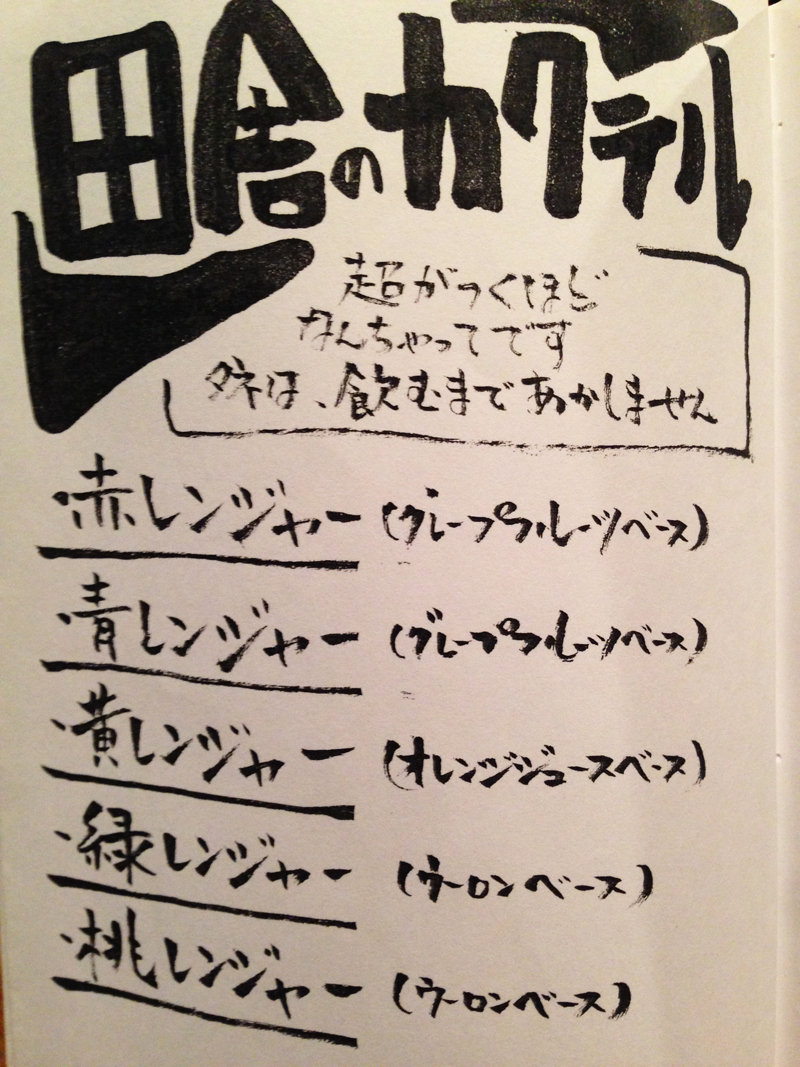 田舎のカクテル
超がつくほど
なんちゃってです
タネは、飲むまであかしません
・赤レンジャー (グレープフルーツベース)
・青レンジャー (グレープフルーツベース)
・黄レンジャー (オレンジジュースベース)
・緑レンジャー (ウーロンベース)
・桃レンジャー (ウーロンベース)